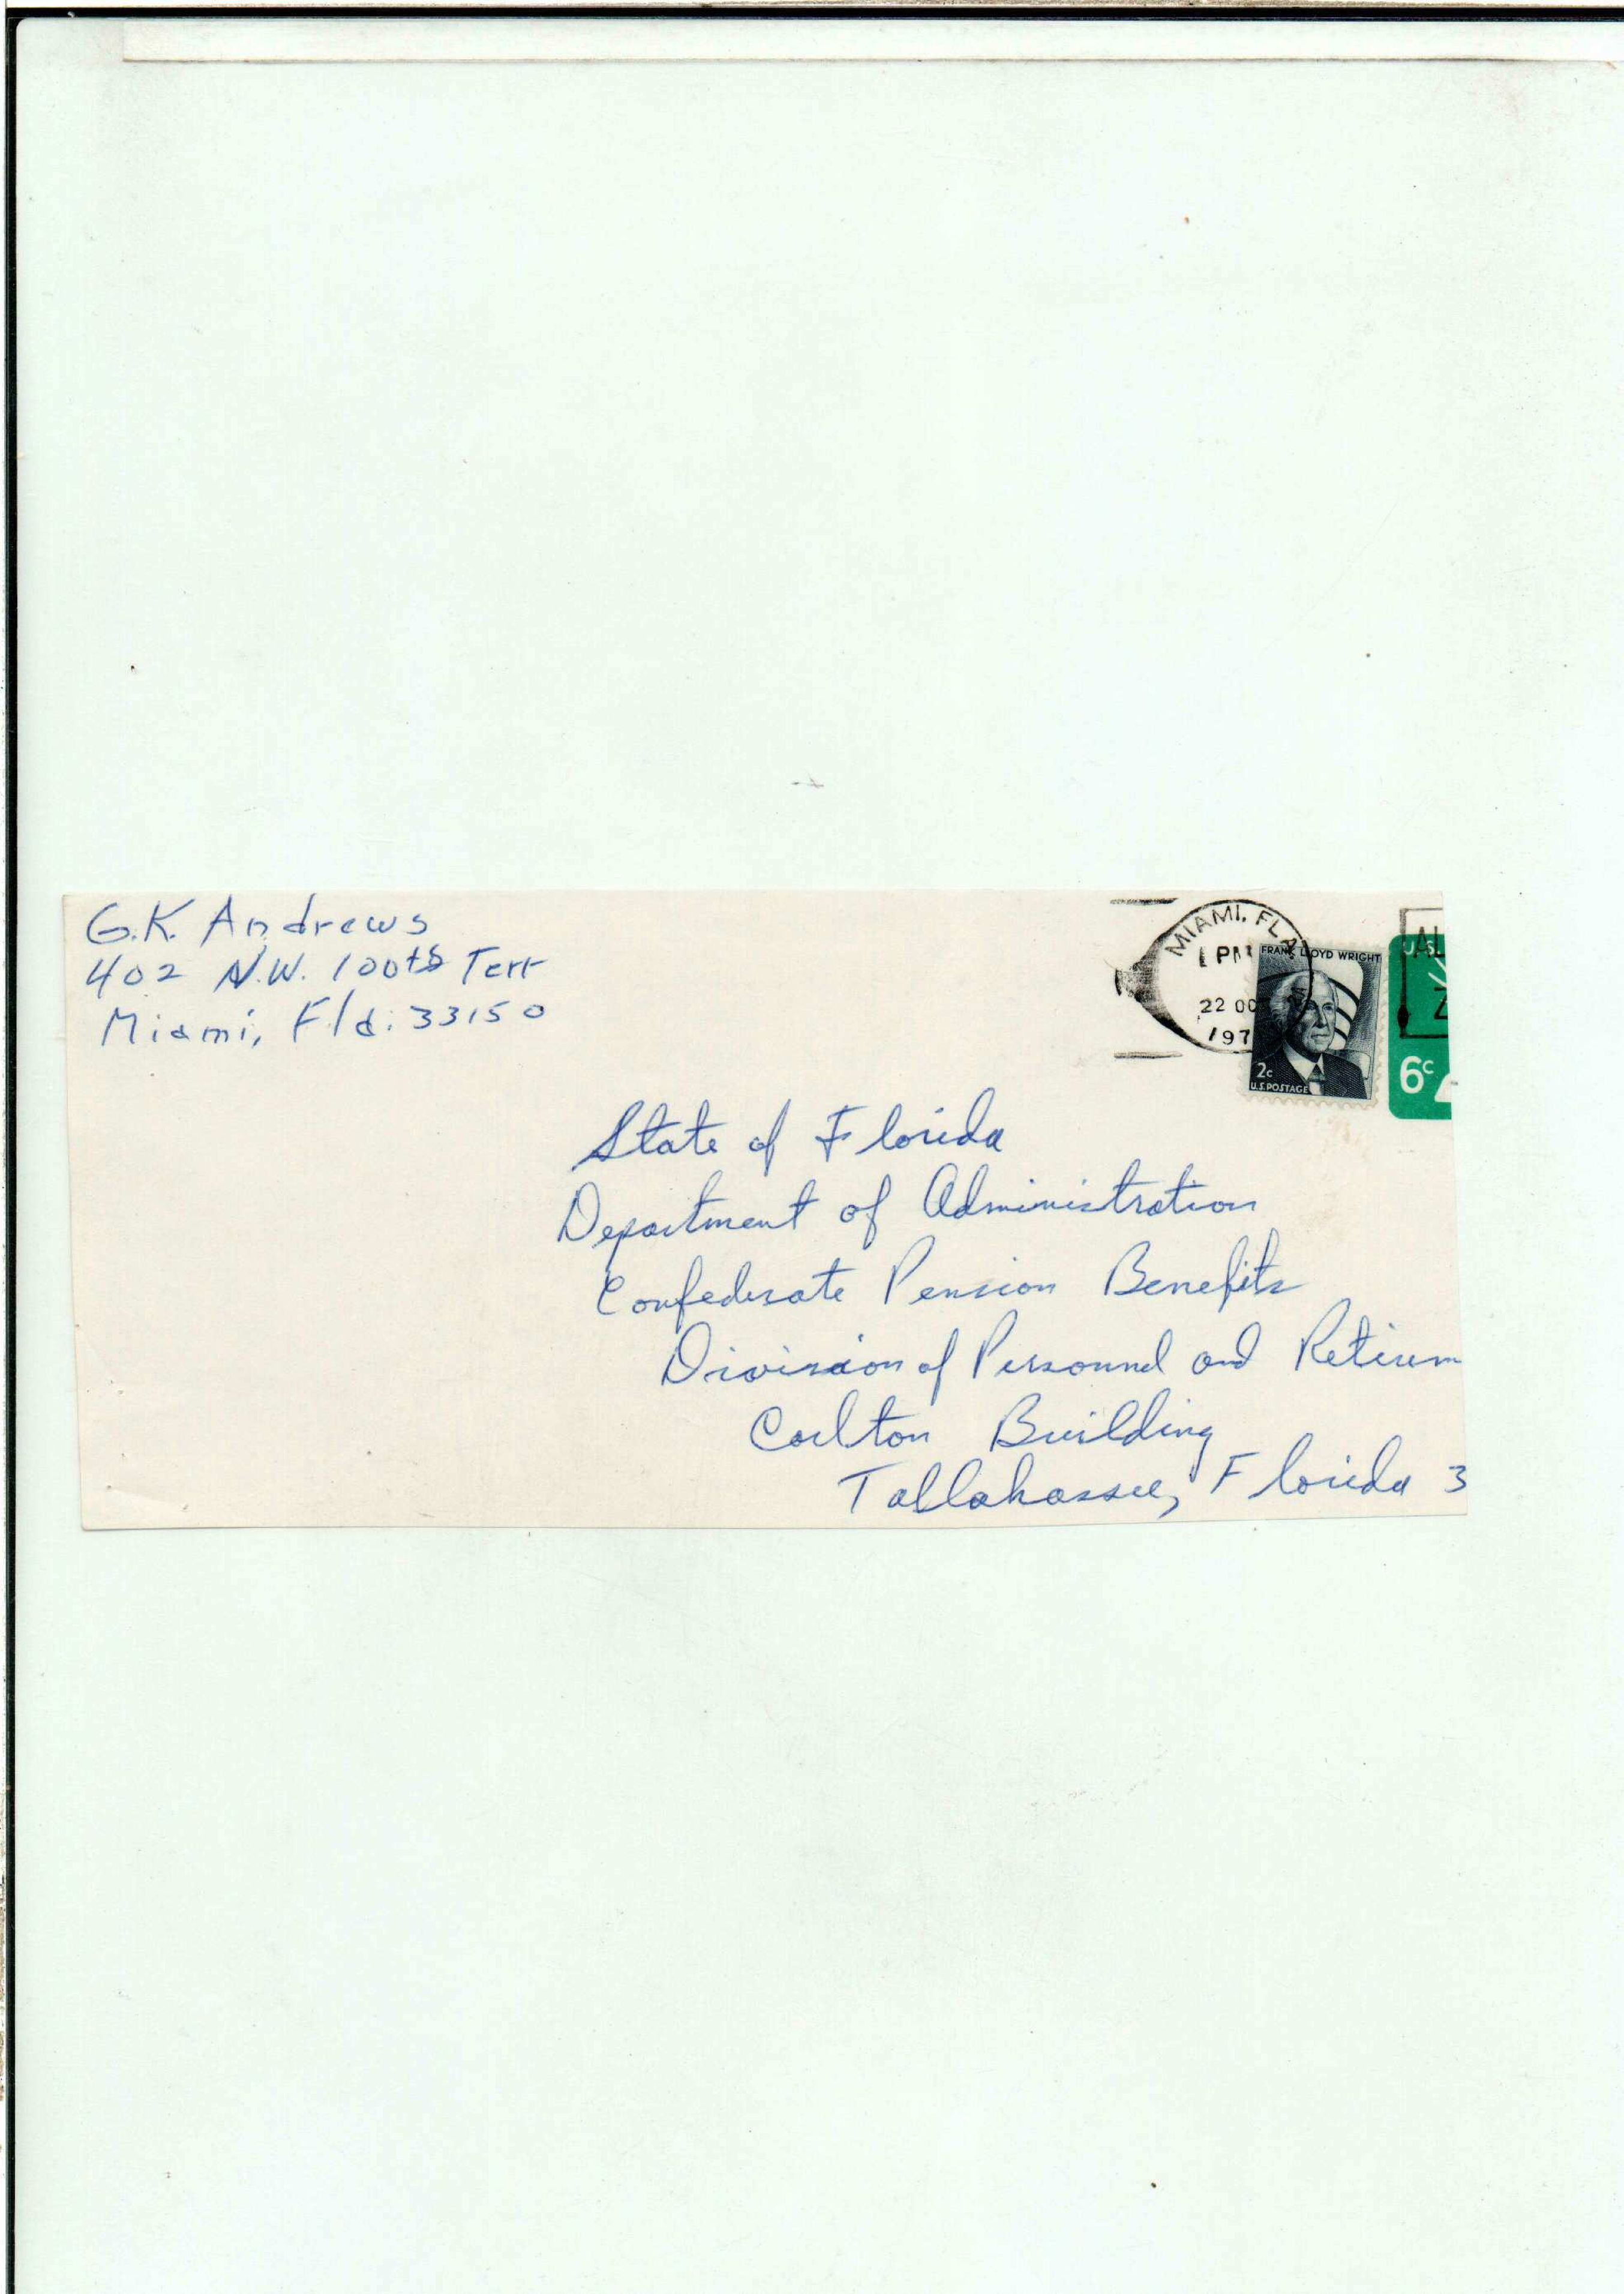 G.K. Andrews
402 N.W. 100th Terr
Miami, Fla. 33150
MIAMI, FLA
PM
22 OC
197
FRANK LLOYD WRIGHT
2c
U.S. POSTAGE
U.S.
AL
Z
6c
State of Florida
Department of Administration
Confederate Pension Benefits
Division of Personnel and Retirem
Carlton Building
Tallahassee, Florida 3